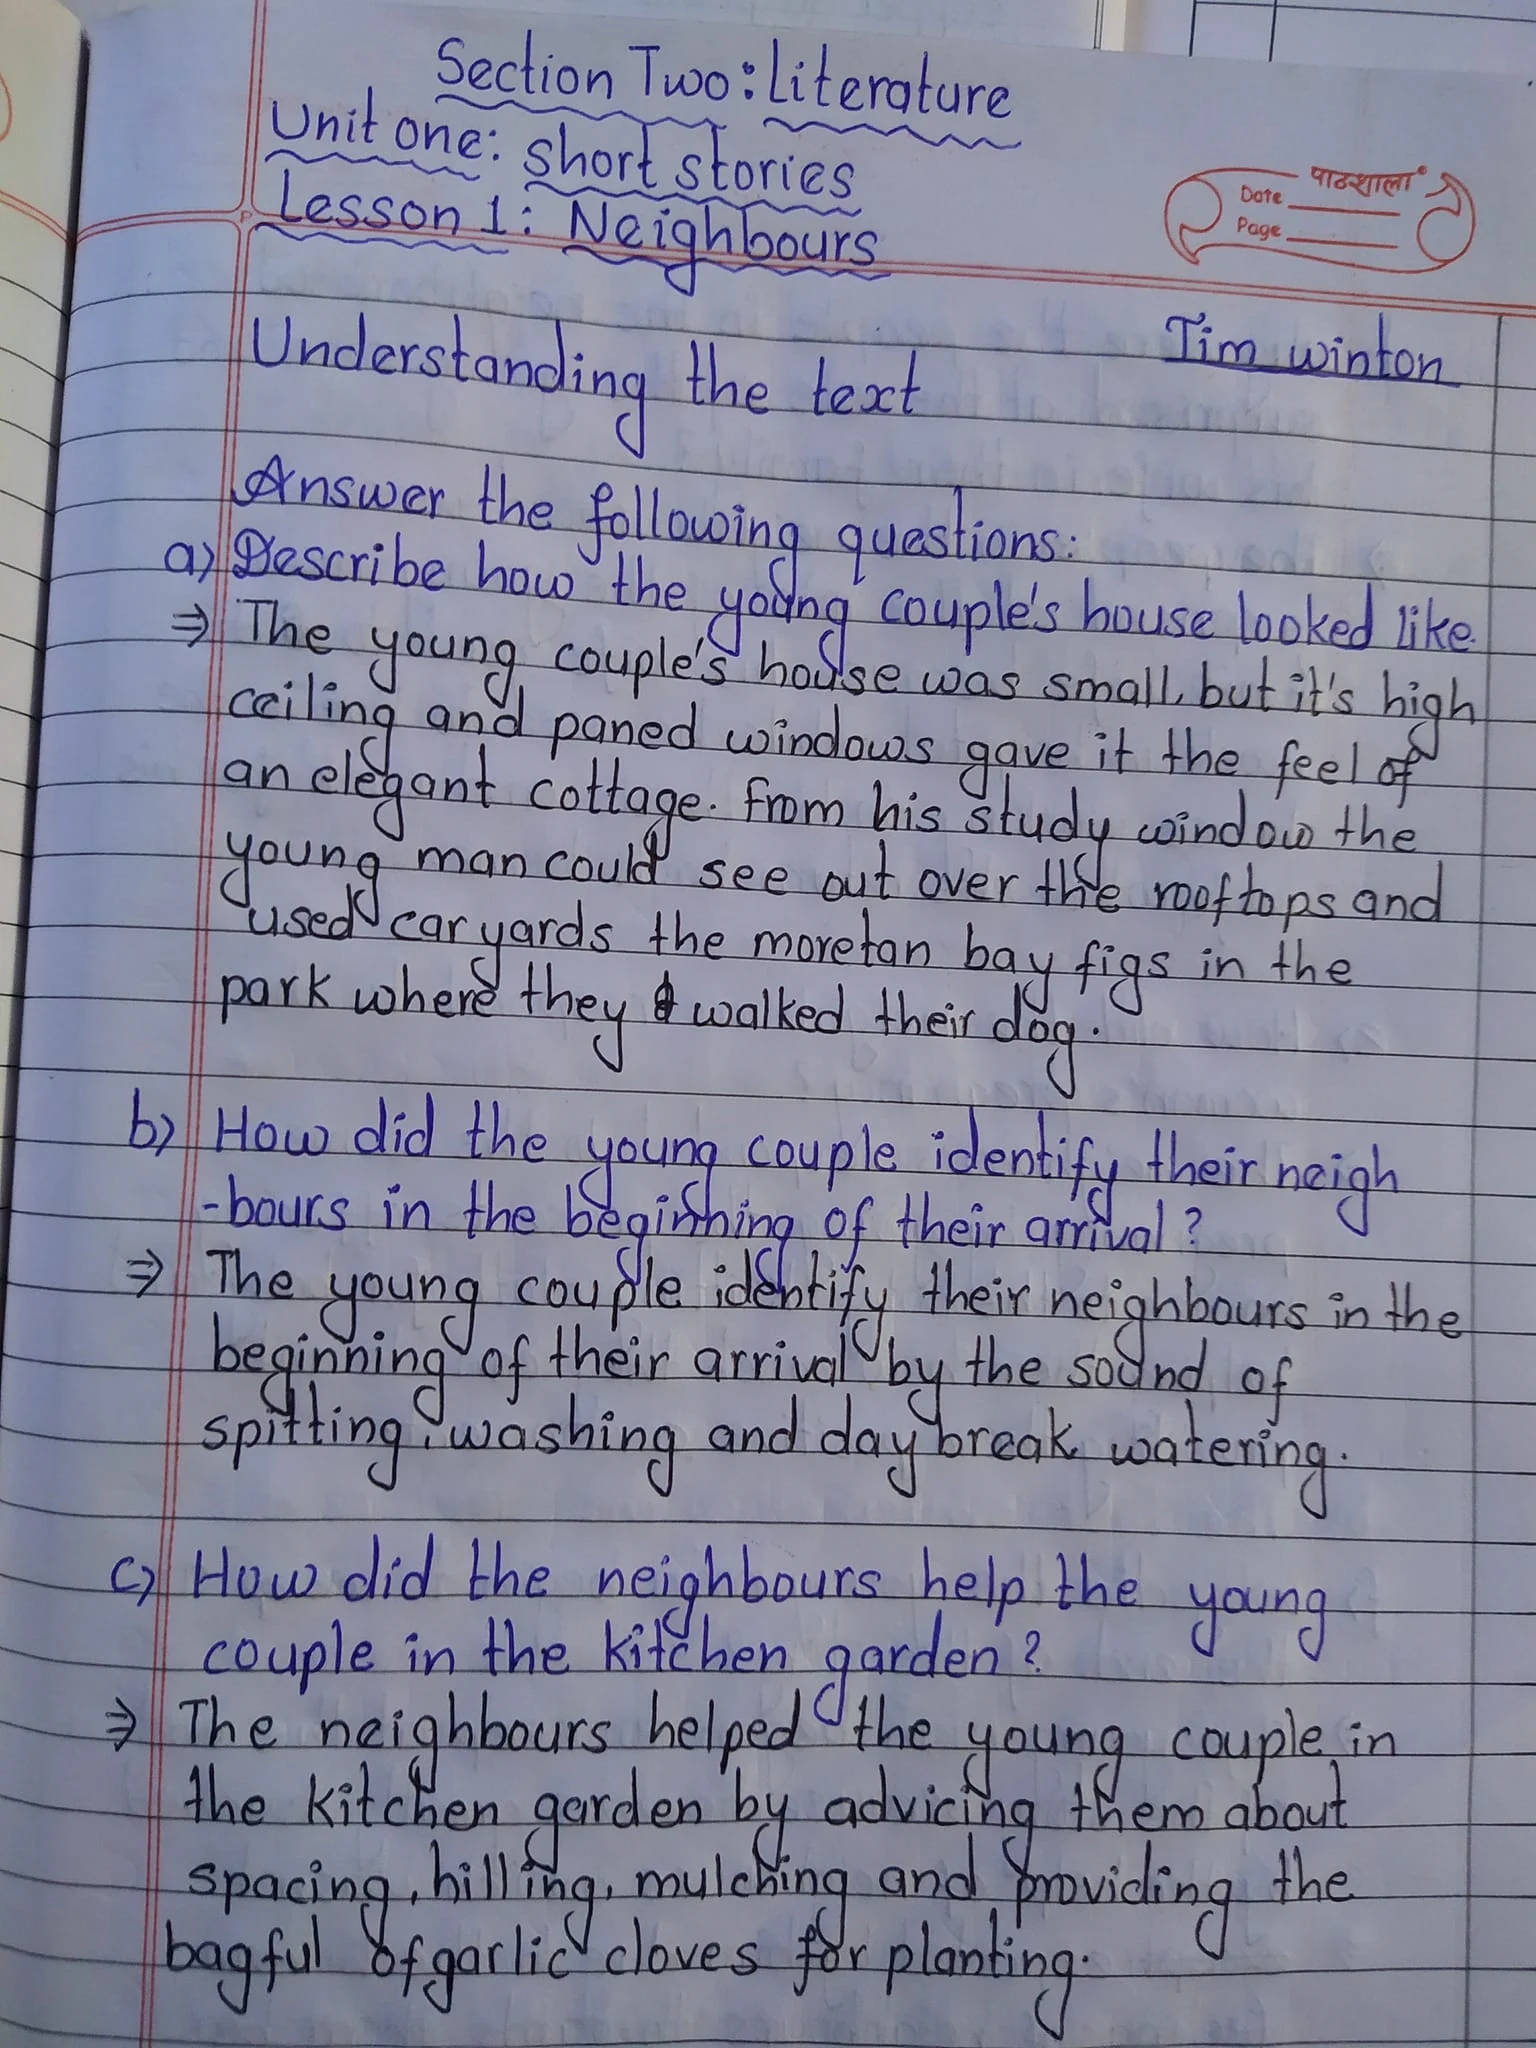 Section Two: Literature
Unit one: short stories
Lesson 1: Neighbours
पाठशाला
Date
Page
Tim winton
Understanding the text
Answer the following questions:
a) Describe how the young couple's house looked like.
⇒ The young couple's house was small, but it's high
ceiling and paned windows gave it the feel of
an elegant cottage. From his study window the
young man could see out over the rooftops and
used car yards the moretan bay figs in the
park where they walked their dog.
b) How did the young couple identify their neigh
-bours in the beginning of their arrival?
⇒ The young couple identify their neighbours in the
beginning of their arrival by the sound of
spitting, washing and day break watering.
c) How did the neighbours help the young
couple in the kitchen garden?
⇒ The neighbours helped the young couple in
the kitchen garden by advicing them about
spacing, hilling, mulching and providing the
bagful of garlic cloves for planting.